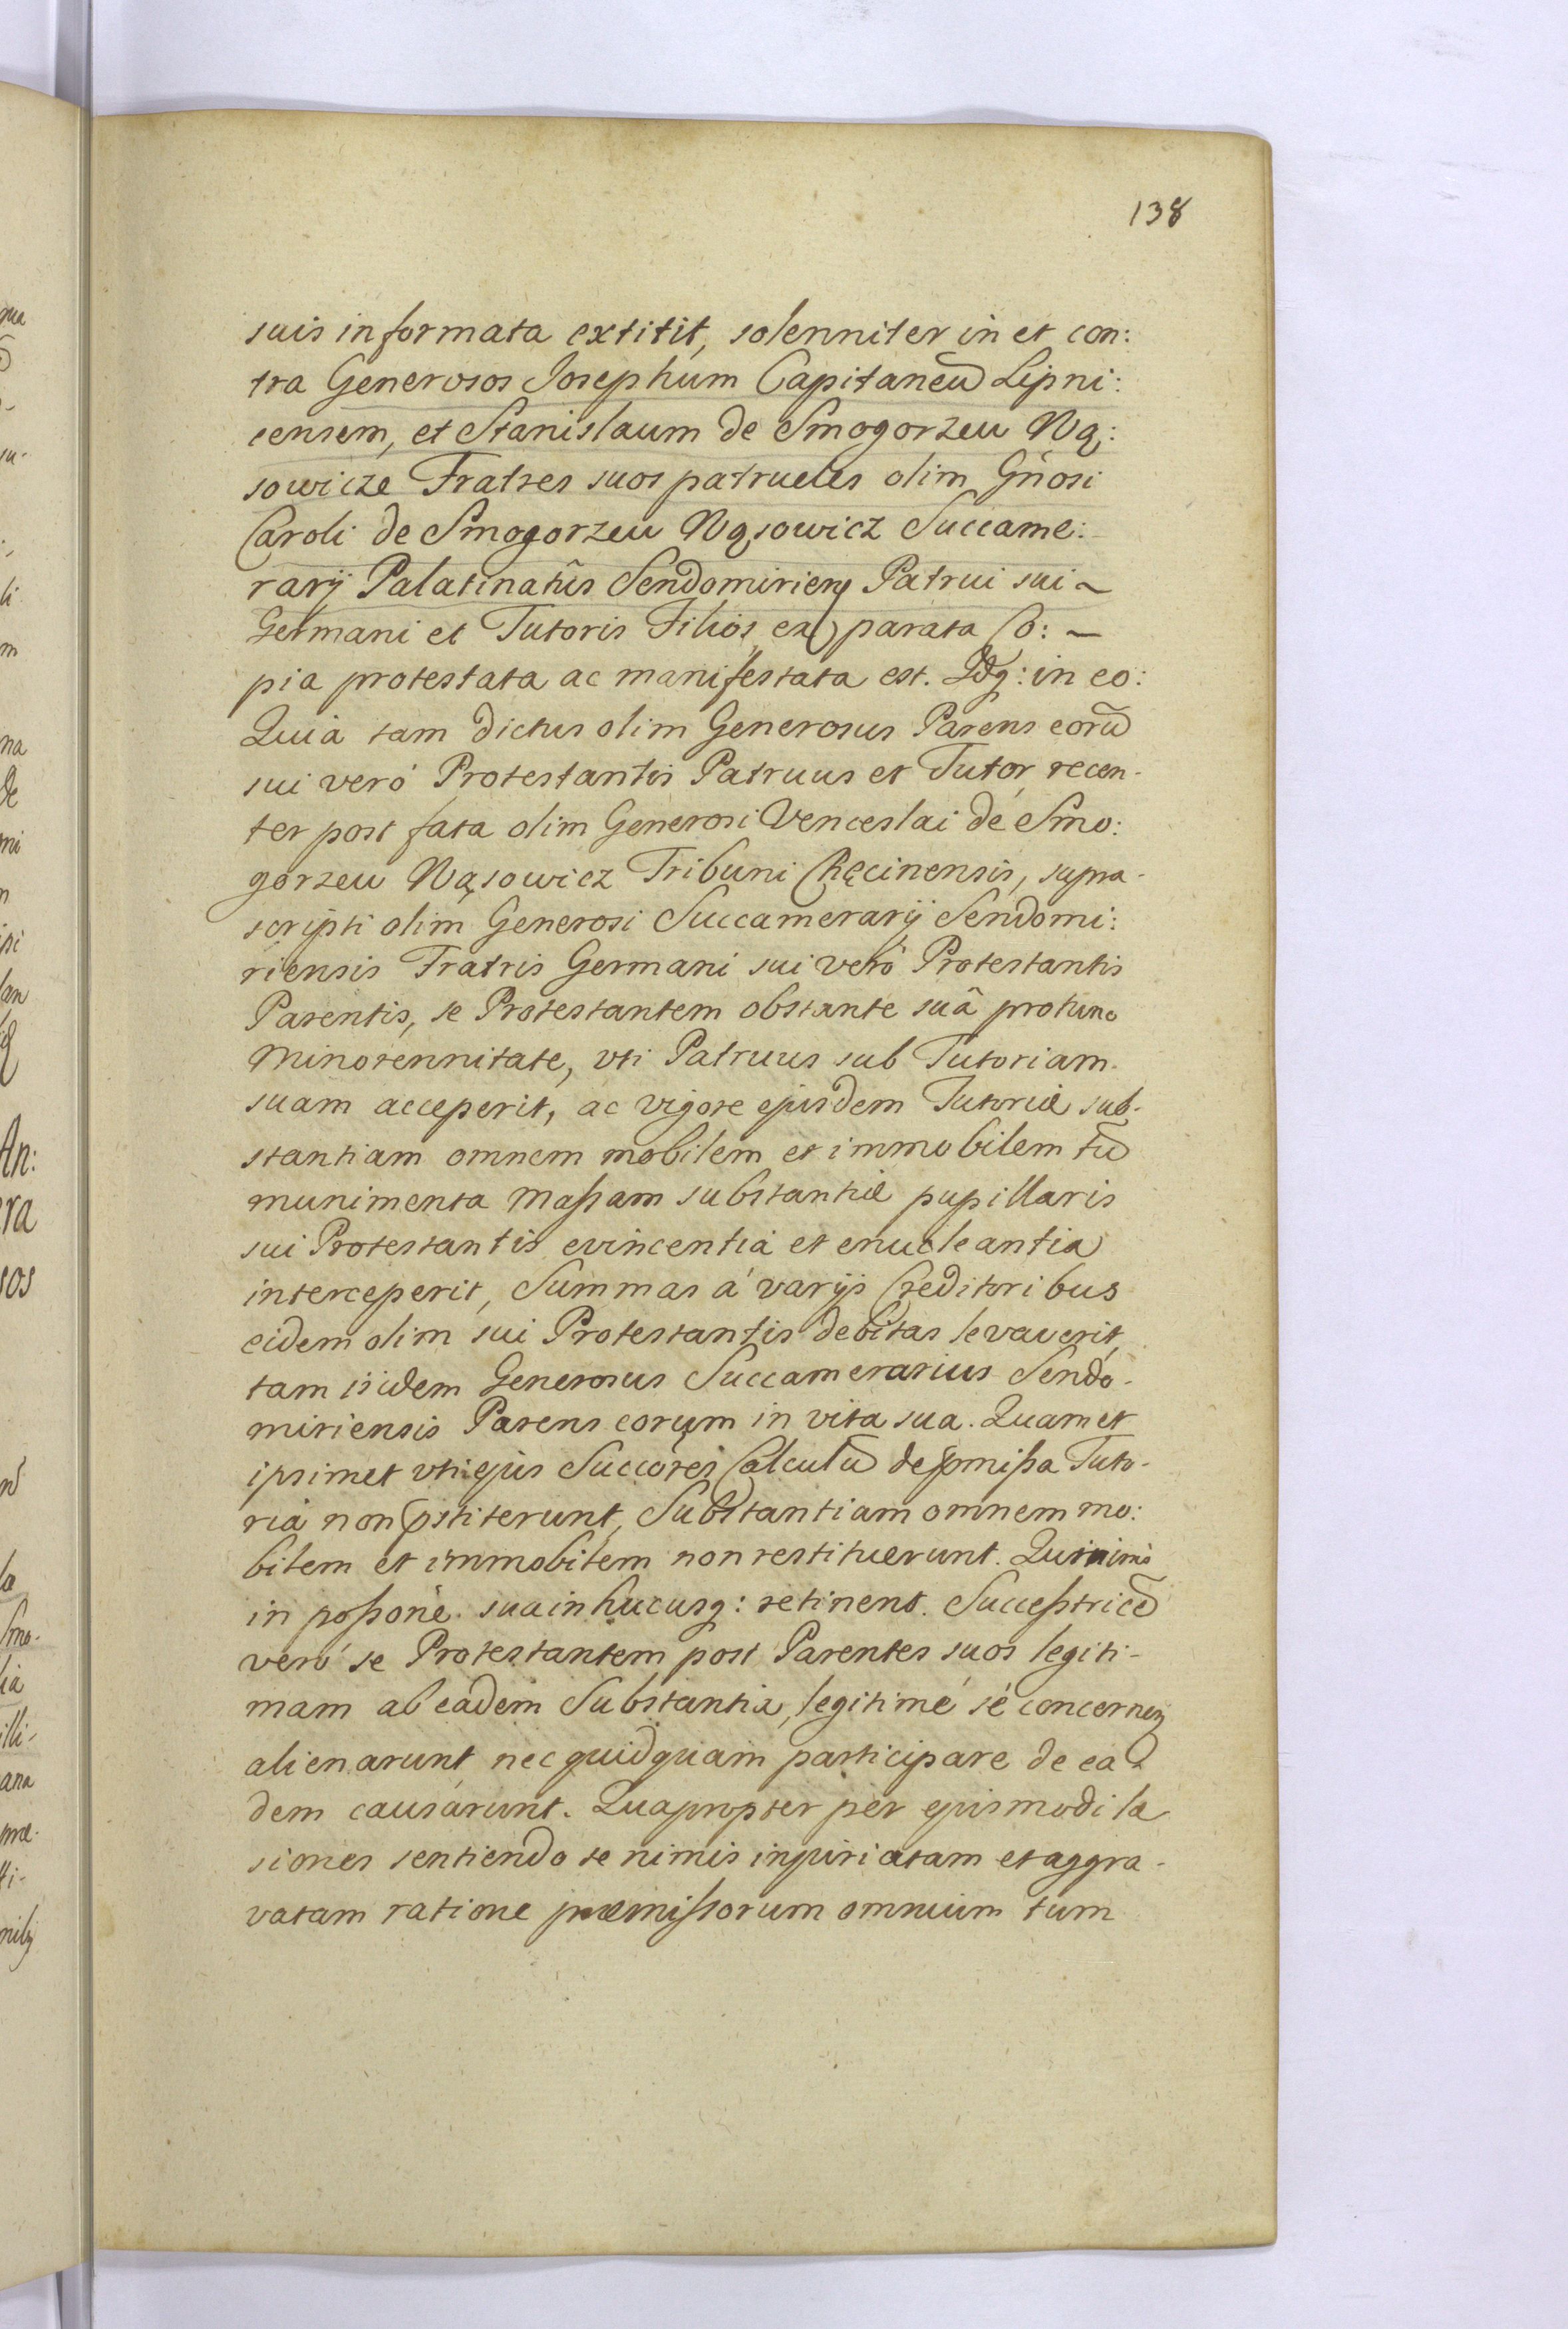 138
suis informata extitit, solenniter in et con:
tra Generosos Josephum Capitaneū Lipni:
censem, et Stanislaum de Smogorzew Wą:
sowicze Fratres suos patrueles olim Gńosi
Caroli de Smogorzew Wąsowicz Succame:
rarij Palatinatûs Sendomirieng Patrui sui ~
Germani et Tutoris Filios, ex parata Co: ~
pia protestata ac manifestata est. Idq: in eo:
Quia tam dictus olim Generosus Parens eorū
sui veró Protestantis Patruus et Tutor recen-
ter post fata olim Generosi Venceslai de Smo:
gorzew Wąsowicz Tribuni Chęcinensis, supra-
scripti olim Generosi Succamerarij Sendomi:
riensis Fratris Germani sui veró Protestantis
Parentis, se Protestantem obstante suâ protunc
minorennitate, vti Patruus sub Tutoriam
suam acceperit, ac vigore ejusdem Tutoriæ sub-
stantiam omnem mobilem et immobilem tū
munimenta Massam substantiæ pupillaris
sui Protestantis evincentia et enucleantia
interceperit, Summas á varijs Creditoribus
eidem olim sui Protestantis debitas levaverit,
tam isidem Generosus Succamerarius Sendo-
miriensis Parens eorum in vita sua. Quam et
ipsimet vti ejus Succōres Calculū de pmissa Tuto-
ria non pstiterunt, Substantiam omnem mo:
bilem et immobilem non restituerunt. Quinimo
in possone sua in hucusq: retinent. Successtricē
veró se Protestantem post Parentes suos legiti-
mam ab eâdem Substantia, legitimé se concernen
alienarunt nec quidquam participare de ea
dem causarunt. Quapropter per ejusmodi læ
siones sentiendo se nimis injuriatam et aggra-
vatam ratione præmissorum omnium tum